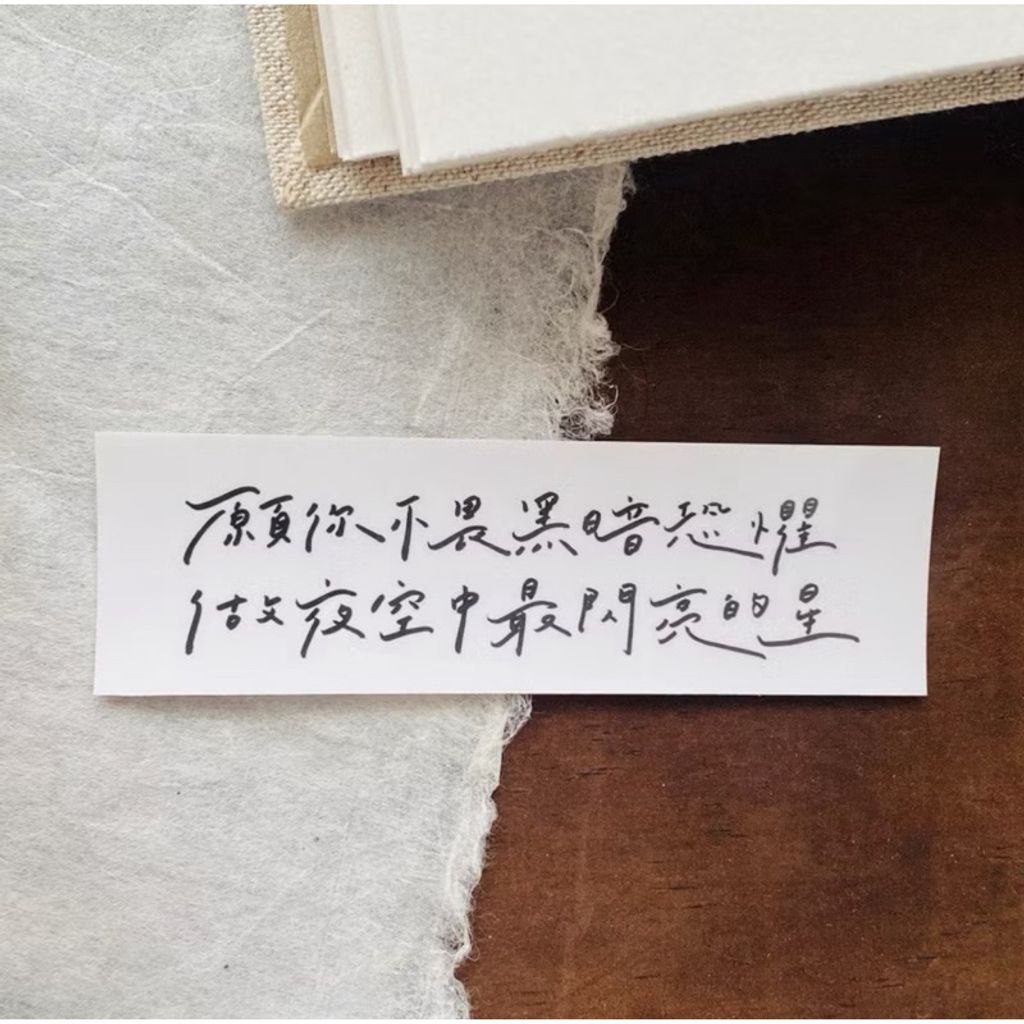 願你不畏黑暗恐懼
做夜空中最閃亮的星